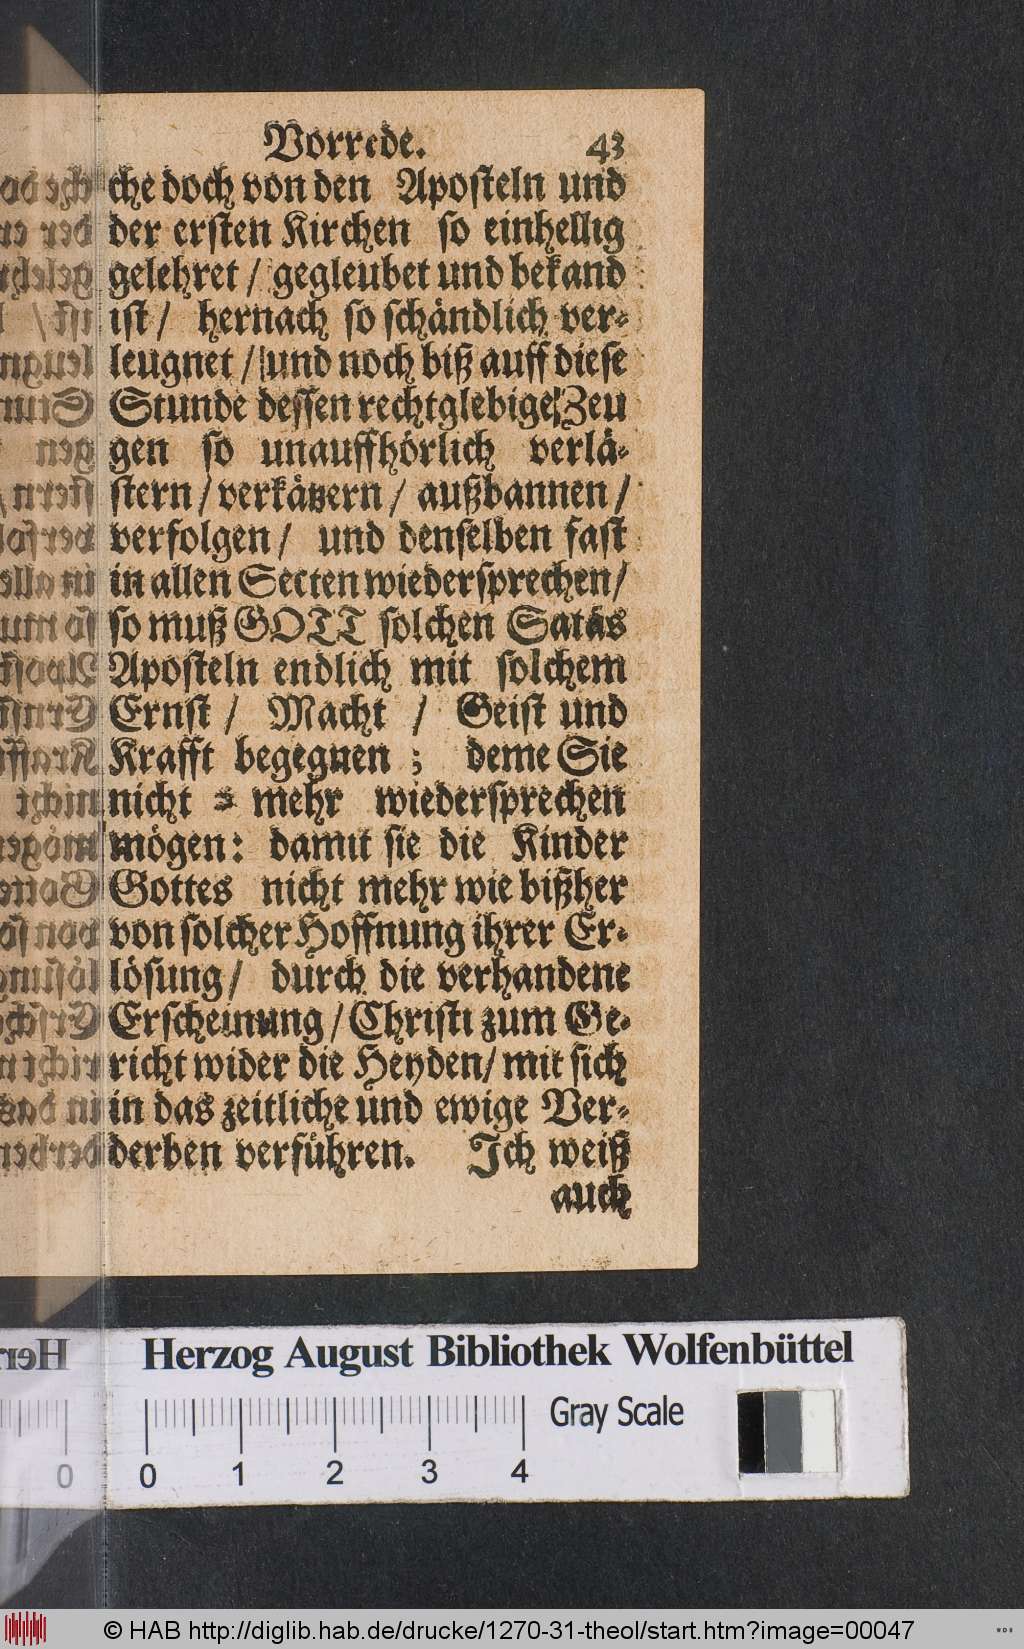 Vorrede. 43
che doch von den Aposteln und
der ersten Kirchen so einhellig
gelehret / gegleubet und bekand
ist / hernach so schändlich ver-
leugnet / und noch biß auff diese
Stunde dessen rechtglebige Zeu
gen so unauffhörlich verlä-
stern / verkätzern / außbannen /
verfolgen / und denselben fast
in allen Secten wiedersprechen /
so muß GOTT solchen Satās
Aposteln endlich mit solchem
Ernst / Macht / Geist und
Krafft begegnen ; deme Sie
nicht = mehr wiedersprechen
mögen: damit sie die Kinder
Gottes nicht mehr wie bißher
von solcher Hoffnung ihrer Er-
lösung / durch die verhandene
Erscheinung / Christi zum Ge-
richt wider die Heyden / mit sich
in das zeitliche und ewige Ver-
derben verführen. Ich weiß
auch
Herzog August Bibliothek Wolfenbüttel
Gray Scale
0 1 2 3 4
© HAB http://diglib.hab.de/drucke/1270-31-theol/start.htm?image=00047